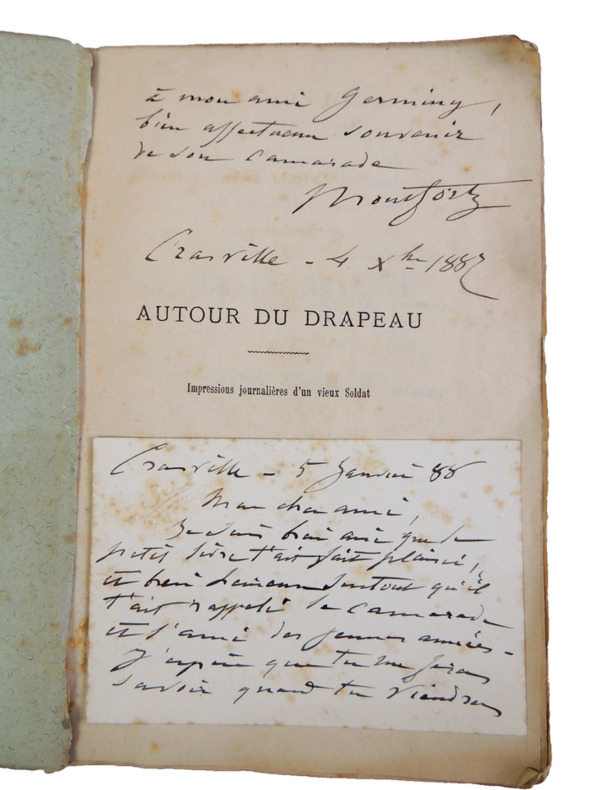 à mon ami Germiny,
bien affectueux souvenir
de son Camarade
Montfort
Crasville - 4 Xbre 1887
AUTOUR DU DRAPEAU
Impressions journalières d'un vieux Soldat
Crasville - 5 Janvier 88
Mon cher ami,
Je suis bien aise que le
petit livre t'ait fait plaisir,
et bien heureux surtout qu'il
t'ait rappelé le camarade
et l'ami des jeunes années -
J'espère que tu me feras
savoir quand tu viendras